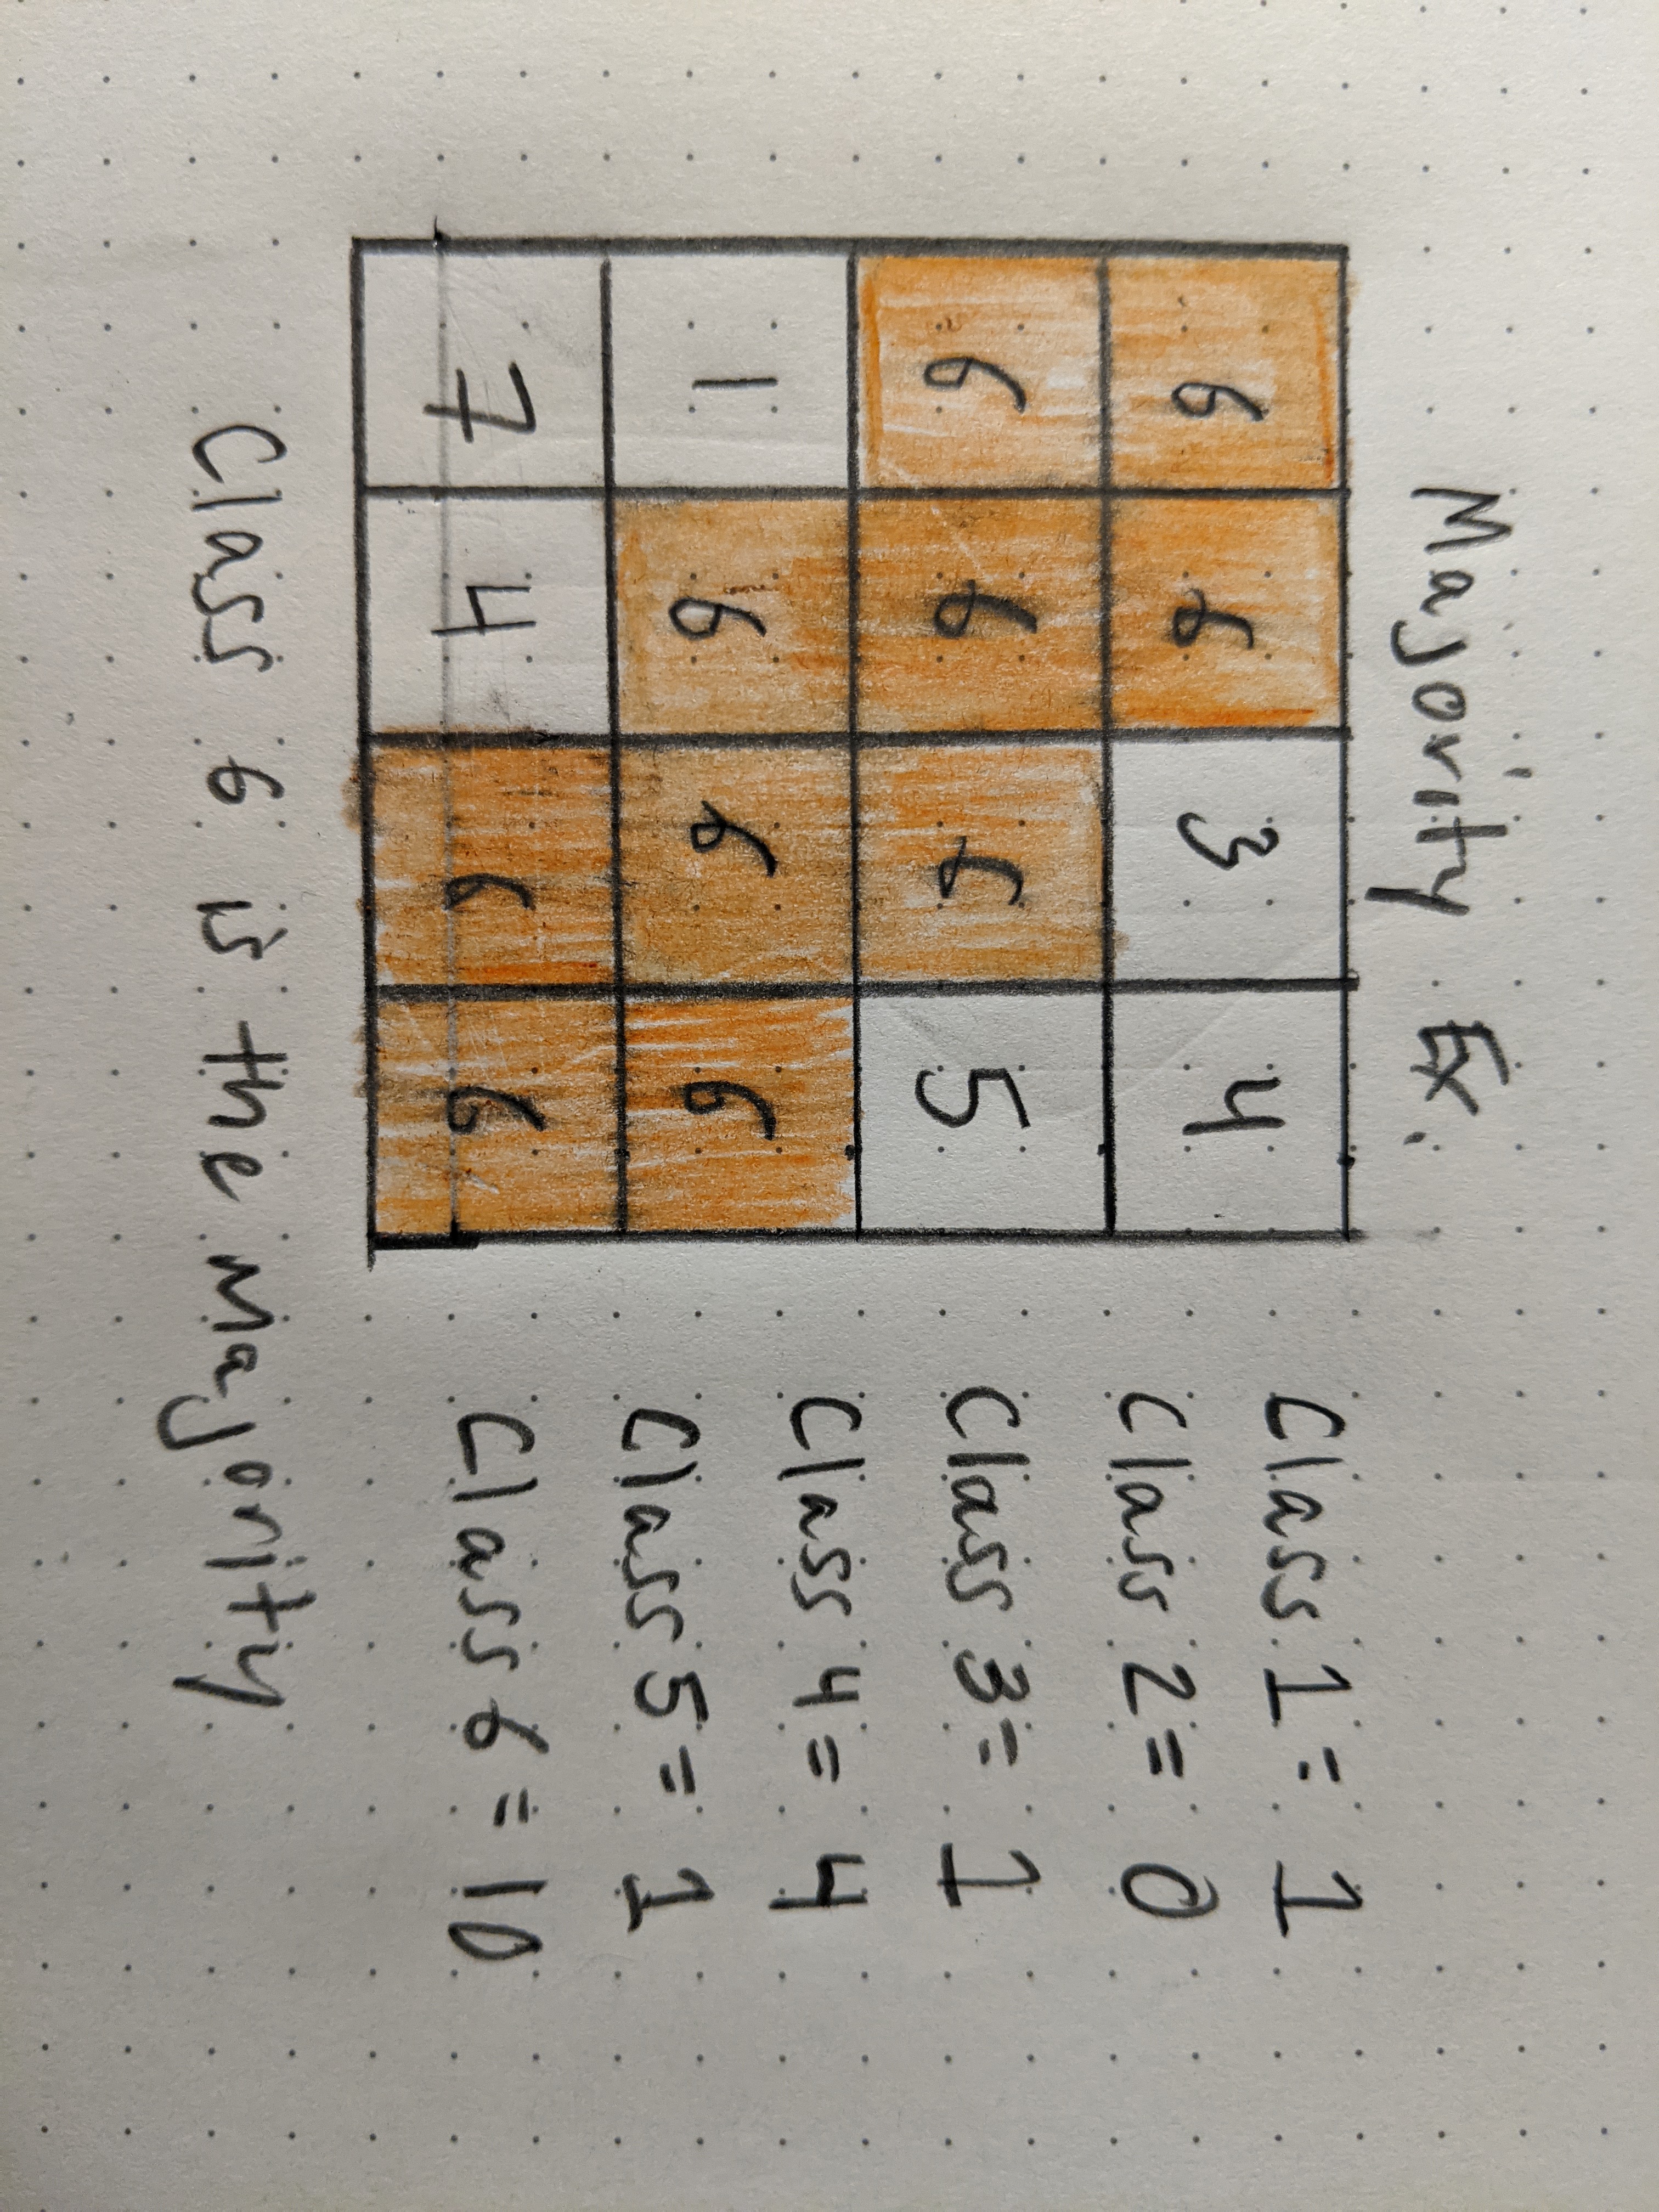 Majority Ex.
6 6 3 4
6 6 6 5
1 6 6 6
7 4 6 6
Class 1 = 1
Class 2 = 0
Class 3 = 1
Class 4 = 4
Class 5 = 1
Class 6 = 10
Class 6 is the Majority